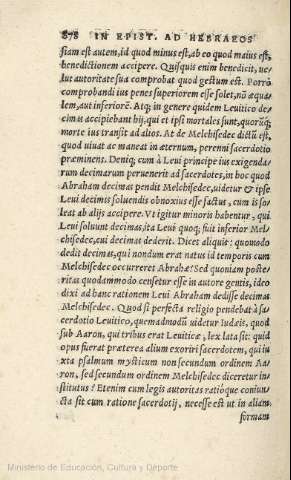 878 IN EPIST. AD HEBRAEOS
siam est autem, id quod minus est, ab eo quod maius est,
benedictionem accipere. Quisquis enim benedicit, ue-
lut autoritate sua comprobat quod gestum est. Porrò
comprobandi ius penes superiorem esse solet, nō æqua
lem, aut inferiorē. Atq; in genere quidem Leuitico de-
cimas accipiebant hi, qui et ipsi mortales sunt, quorūq;
morte ius transit ad alios. At de Melchisedec dictū est,
quod uiuat ac maneat in æternum, perenni sacerdotio
præminens. Deniq; cum à Leui principe ius exigenda-
rum decimarum peruenerit ad sacerdotes, in hoc quod
Abraham decimas pendit Melchisedec, uidetur & ipse
Leui decimis soluendis obnoxius esse factus, cum is so-
leat ab alijs accipere. Vt igitur minores habentur, qui
Leui soluunt decimas, ita Leui quoq; fuit inferior Mel-
chisedec, cui decimas dederit. Dices aliquis: quomodo
dedit decimas, qui nondum erat natus id temporis cum
Melchisedec occurreret Abrahæ? Sed quoniam poste-
ritas quodammodo censetur esse in autore gentis, ideo
dixi ad hanc rationem Leui Abraham dedisse decimas
Melchisedec. Quod si perfecta religio pendebat à sa-
cerdotio Leuitico, quemadmodū uidetur Iudæis, quod
sub Aaron, qui tribus erat Leuiticæ, lex lata sit: quid
opus fuerat præterea alium exoriri sacerdotem, qui iu
xta psalmum mysticum non secundum ordinem Aa-
ron, sed secundum ordinem Melchisedec diceretur in-
stitutus? Etenim cum legis autoritas ratioq́ue coniun-
cta sit cum ratione sacerdotij, necesse est ut in aliam
formam
Ministerio de Educación, Cultura y Deporte